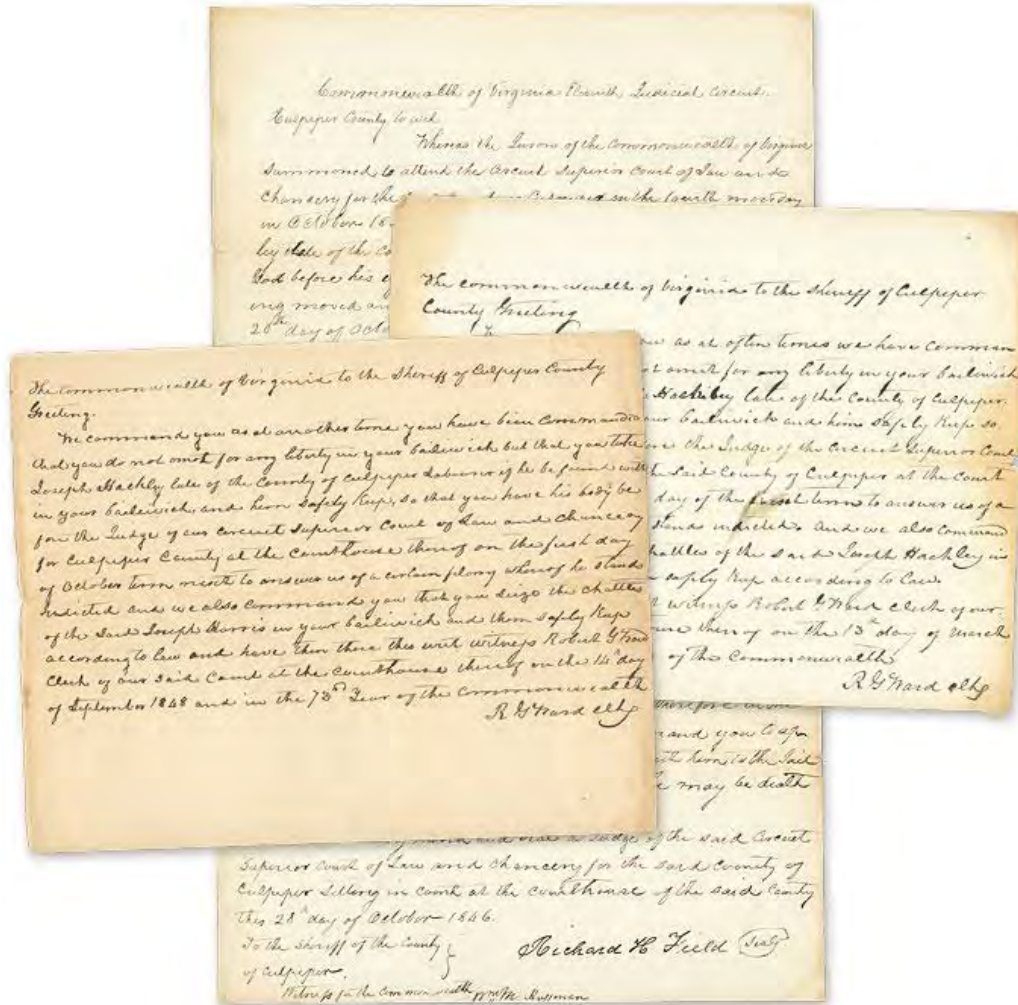 Commonwealth of Virginia Fourth Judicial Circuit
Culpeper County to wit
Whereas the Jurors of the Commonwealth of Virginia
Summoned to attend the Circuit Superior Court of Law and
Chancery for the on the fourth monday
in October 18
by late of the Co
God before his
ing moved an
28th day of Octo
The Commonwealth of Virginia to the Sheriff of Culpeper
County Greeting
as at often times we have comman
not omit for any liberty in your bailiwick
Hackley late of the County of Culpeper
bailiwick and him Safely Keep so
the Judge of the Circuit Superior Court
said County of Culpeper at the Court
day of the first term to answer us of a
stands indicted. And we also command
chattles of the said Joseph Hackley in
safely Keep according to Law
witness Robert G Ward clerk of our
thereof on the 13th day of March
of the Commonwealth
R G Ward clk
The Commonwealth of Virginia to the Sheriff of Culpeper County
Greeting.
We command you as at another time you have been commanded
that you do not omit for any liberty in your bailiwick but that you take
Joseph Hackly late of the County of Culpeper Labourer if he be found with
in your bailiwick, and him Safely Keep, so that you have his body be
fore the Judge of our Circuit Superior Court of Law and Chancery
for Culpeper County at the Courthouse thereof on the first day
of October term next to answer us of a certain felony whereof he stands
Indicted and we also command you that you seize the chattles
of the said Joseph Harris in your bailiwick and them safely Keep
according to law and have then there this writ witness Robert G Ward
Clerk of our said Court at the Courthouse thereof on the 14th day
of September 1848 and in the 73rd Year of the Commonwealth
R G Ward clk
therefore
mand you to
him is the said
may be dealth
Judge of the said Circuit
Superior Court of Law and Chancery for the said County of
Culpeper Sitting in Court at the Courthouse of the said County
this 28th day of October 1846.
To the Sheriff of the County
of Culpeper.
Richard H Field Seal
Witness for the Commonwealth Wm M Huffman